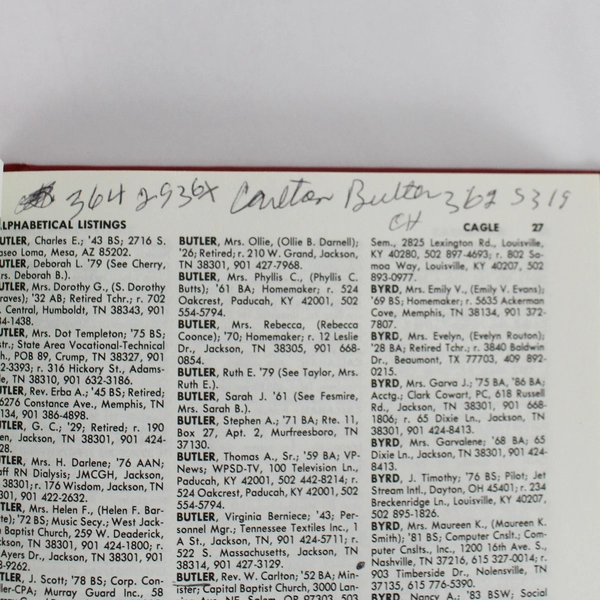 364 2936X Carlton Butler 362 5319
CH
ALPHABETICAL LISTINGS
CAGLE 27
UTLER, Charles E.; '43 BS; 2716 S.
aseo Loma, Mesa, AZ 85202.
UTLER, Deborah L. '79 (See Cherry,
rs. Deborah B.).
UTLER, Mrs. Dorothy G., (S. Dorothy
raves); '32 AB; Retired Tchr.; r. 702
. Central, Humboldt, TN 38343, 901
34-1438.
UTLER, Mrs. Dot Templeton; '75 BS;
str.; State Area Vocational-Technical
h., POB 89, Crump, TN 38327, 901
2-3393; r. 316 Hickory St., Adams-
le, TN 38310, 901 632-3186.
UTLER, Rev. Erba A.; '45 BS; Retired;
6276 Constance Ave., Memphis, TN
134, 901 386-4898.
UTLER, G. C.; '29; Retired; r. 190
en, Jackson, TN 38301, 901 424-
28.
UTLER, Mrs. H. Darlene; '76 AAN;
aff RN Dialysis; JMCGH, Jackson,
38301; r. 176 Wisdom, Jackson, TN
301, 901 422-2632.
UTLER, Mrs. Helen F., (Helen F. Bar-
te); '72 BS; Music Secy.; West Jack-
n Baptist Church, 259 W. Deaderick,
ckson, TN 38301, 901 424-1800; r.
Ayers Dr., Jackson, TN 38301, 901
8-9262.
TLER, J. Scott; '78 BS; Corp. Con-
ller-CPA; Murray Guard Inc., 58
BUTLER, Mrs. Ollie, (Ollie B. Darnell);
'26; Retired; r. 210 W. Grand, Jackson,
TN 38301, 901 427-7968.
BUTLER, Mrs. Phyllis C., (Phyllis C.
Butts); '61 BA; Homemaker; r. 524
Oakcrest, Paducah, KY 42001, 502
554-5794.
BUTLER, Mrs. Rebecca, (Rebecca
Coonce); '70; Homemaker; r. 12 Leslie
Dr., Jackson, TN 38305, 901 668-
0854.
BUTLER, Ruth E. '79 (See Taylor, Mrs.
Ruth E.).
BUTLER, Sarah J. '61 (See Fesmire,
Mrs. Sarah B.).
BUTLER, Stephen A.; '71 BA; Rte. 11,
Box 27, Apt. 2, Murfreesboro, TN
37130.
BUTLER, Thomas A., Sr.; '59 BA; VP-
News; WPSD-TV, 100 Television Ln.,
Paducah, KY 42001, 502 442-8214; r.
524 Oakcrest, Paducah, KY 42001, 502
554-5794.
BUTLER, Virginia Berniece; '43; Per-
sonnel Mgr.; Tennessee Textiles Inc., 1
A St., Jackson, TN, 901 424-5711; r.
522 S. Massachusetts, Jackson, TN
38314, 901 427-3129.
BUTLER, Rev. W. Carlton; '52 BA; Min-
ister; Capital Baptist Church, 3000 Lan-
Sem., 2825 Lexington Rd., Louisville,
KY 40280, 502 897-4693; r. 802 Sa-
moa Way, Louisville, KY 40207, 502
893-0977.
BYRD, Mrs. Emily V., (Emily V. Evans);
'69 BS; Homemaker; r. 5635 Ackerman
Cove, Memphis, TN 38134, 901 372-
7807.
BYRD, Mrs. Evelyn, (Evelyn Routon);
'28 BA; Retired Tchr.; r. 3840 Baldwin
Dr., Beaumont, TX 77703, 409 892-
0215.
BYRD, Mrs. Garva J.; '75 BA, '86 BA;
Acctg.; Clark Cowart, PC, 618 Russell
Rd., Jackson, TN 38301, 901 668-
1806; r. 65 Dixie Ln., Jackson, TN
38301, 901 424-8413.
BYRD, Mrs. Garvalene; '68 BA; 65
Dixie Ln., Jackson, TN 38301, 901 424-
8413.
BYRD, J. Timothy; '76 BS; Pilot; Jet
Stream Intl., Dayton, OH 45401; r. 234
Breckenridge Ln., Louisville, KY 40207,
502 895-1826.
BYRD, Mrs. Maureen K., (Maureen K.
Smith); '81 BS; Computer Cnslt.; Com-
puter Cnslts., Inc., 1200 16th Ave. S.,
Nashville, TN 37216, 615 327-0014; r.
903 Timberside Dr., Nolensville, TN
37135, 615 776-5390.
BYRD, Nancy A.; '83 BSW; Social